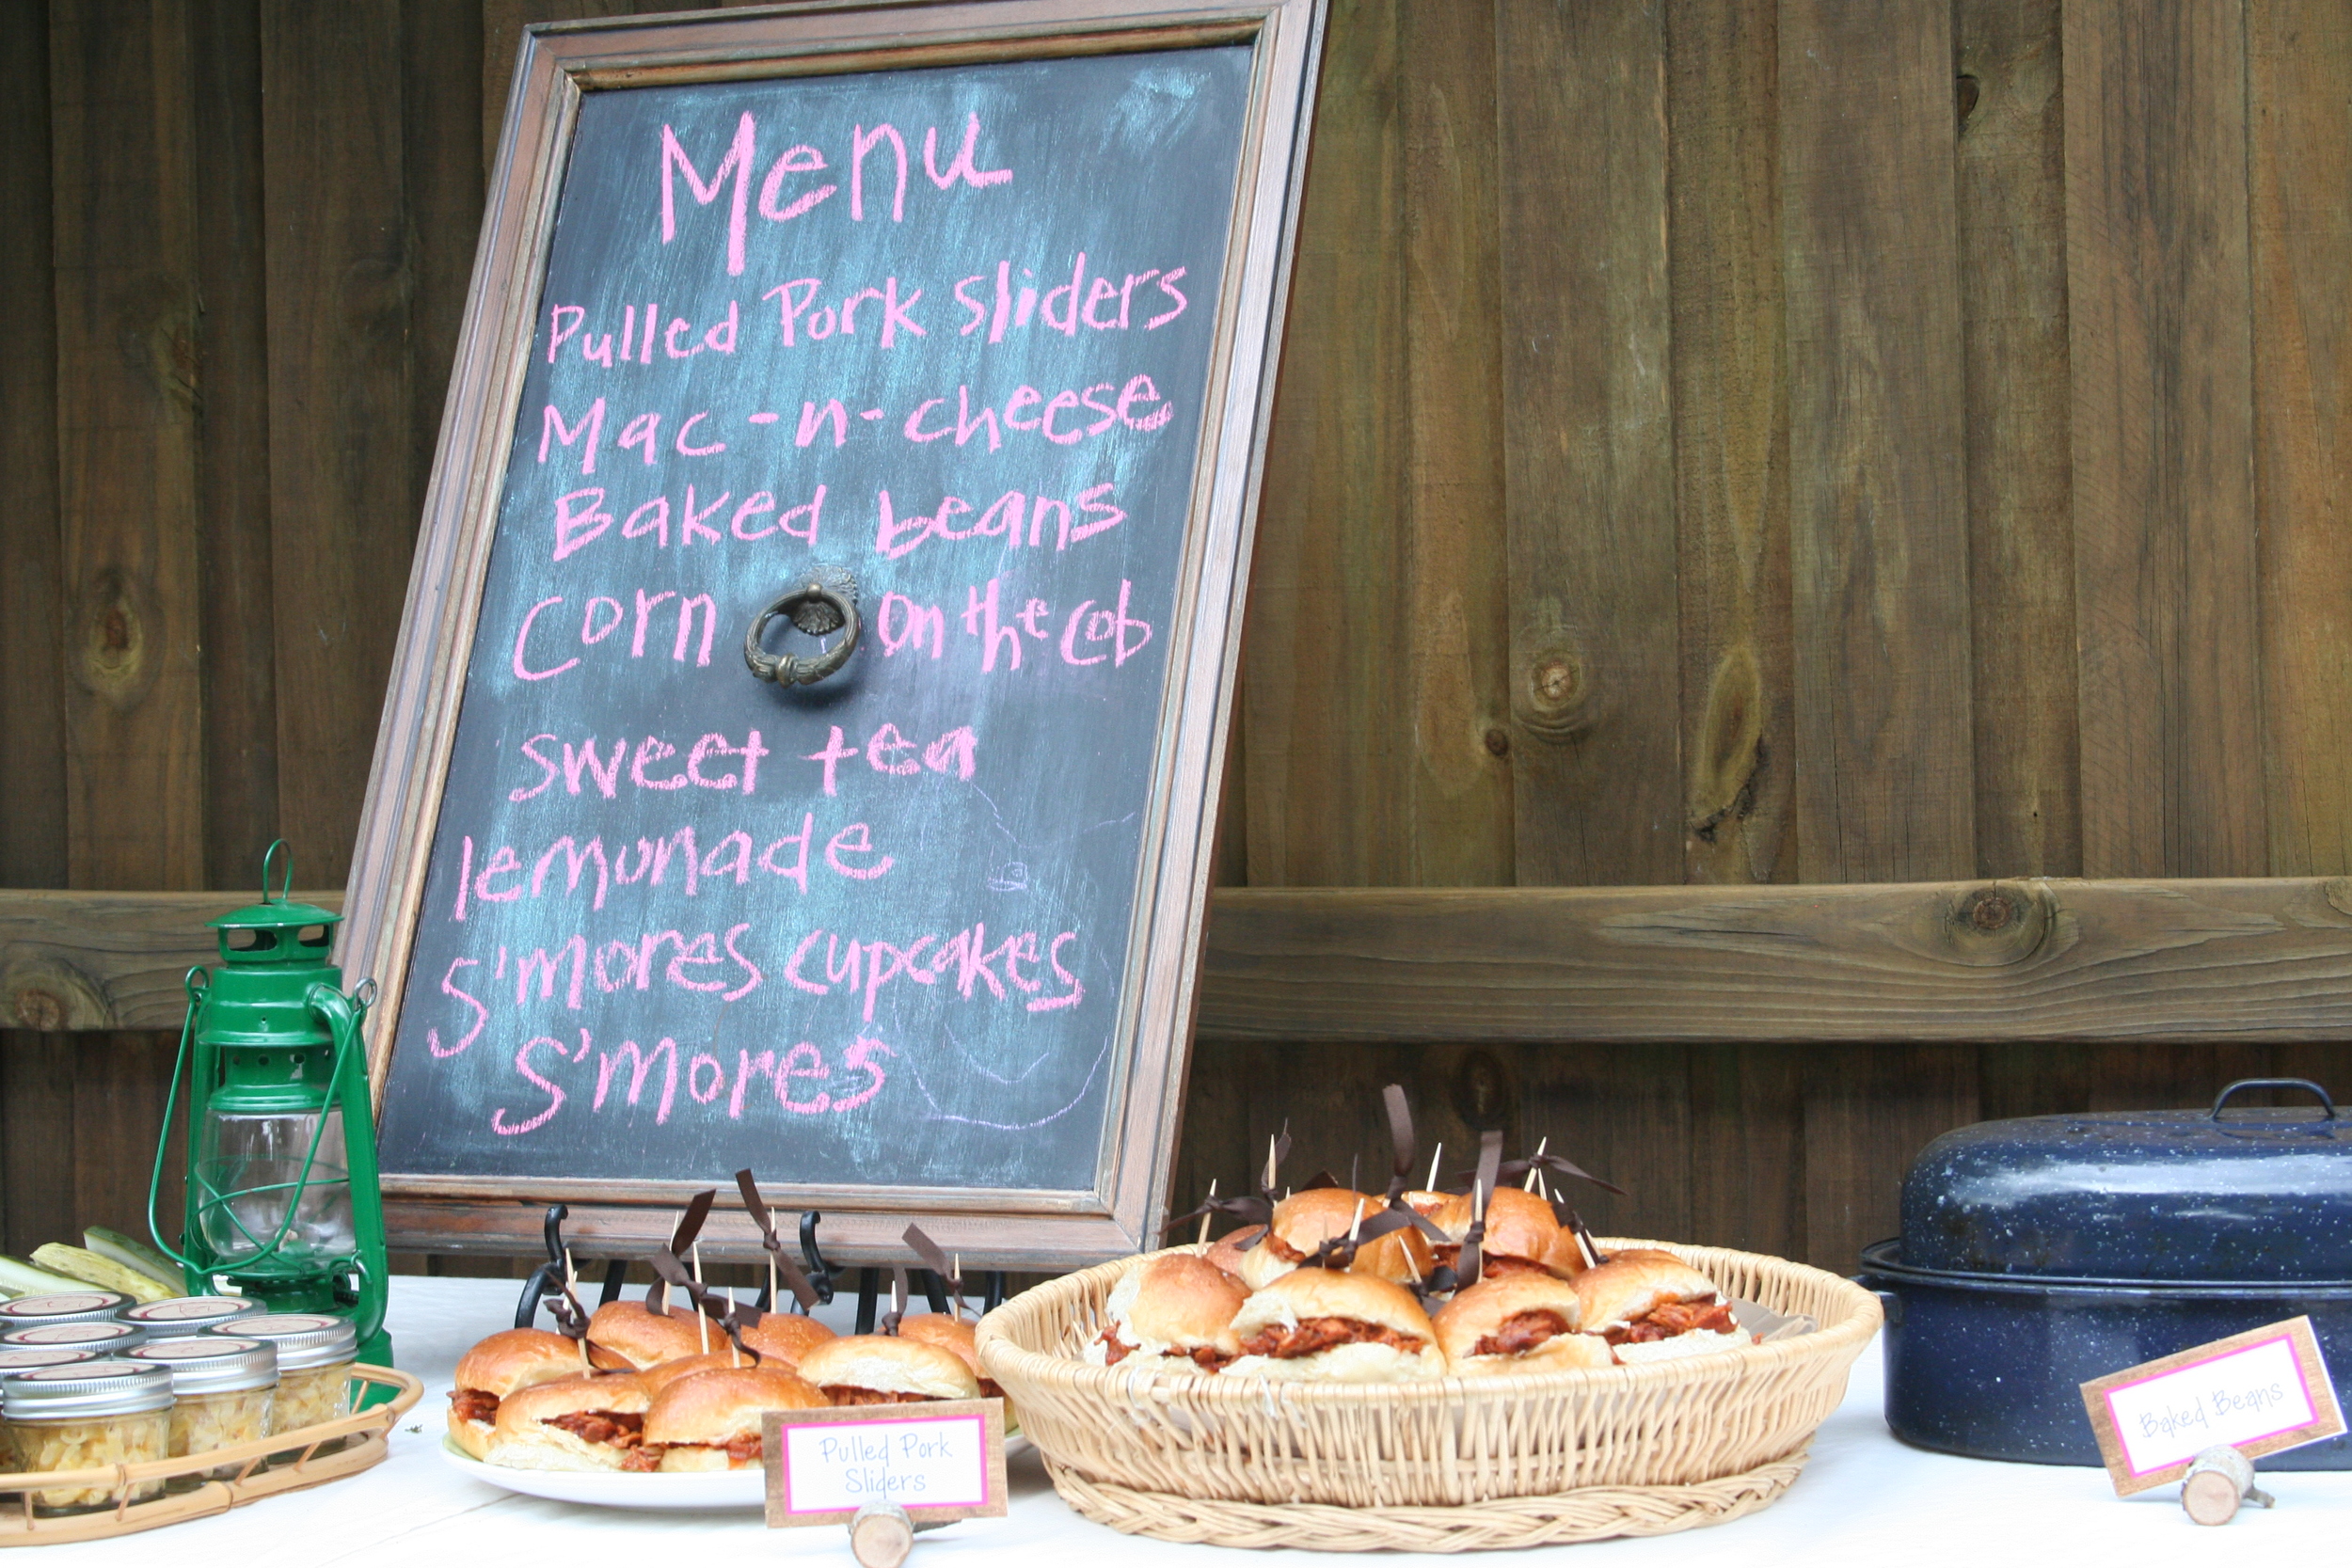 Menu
Pulled Pork Sliders
Mac-n-cheese
Baked beans
Corn on the cob
sweet tea
lemonade
S'mores cupcakes
S'mores
Pulled Pork
Sliders
Baked Beans